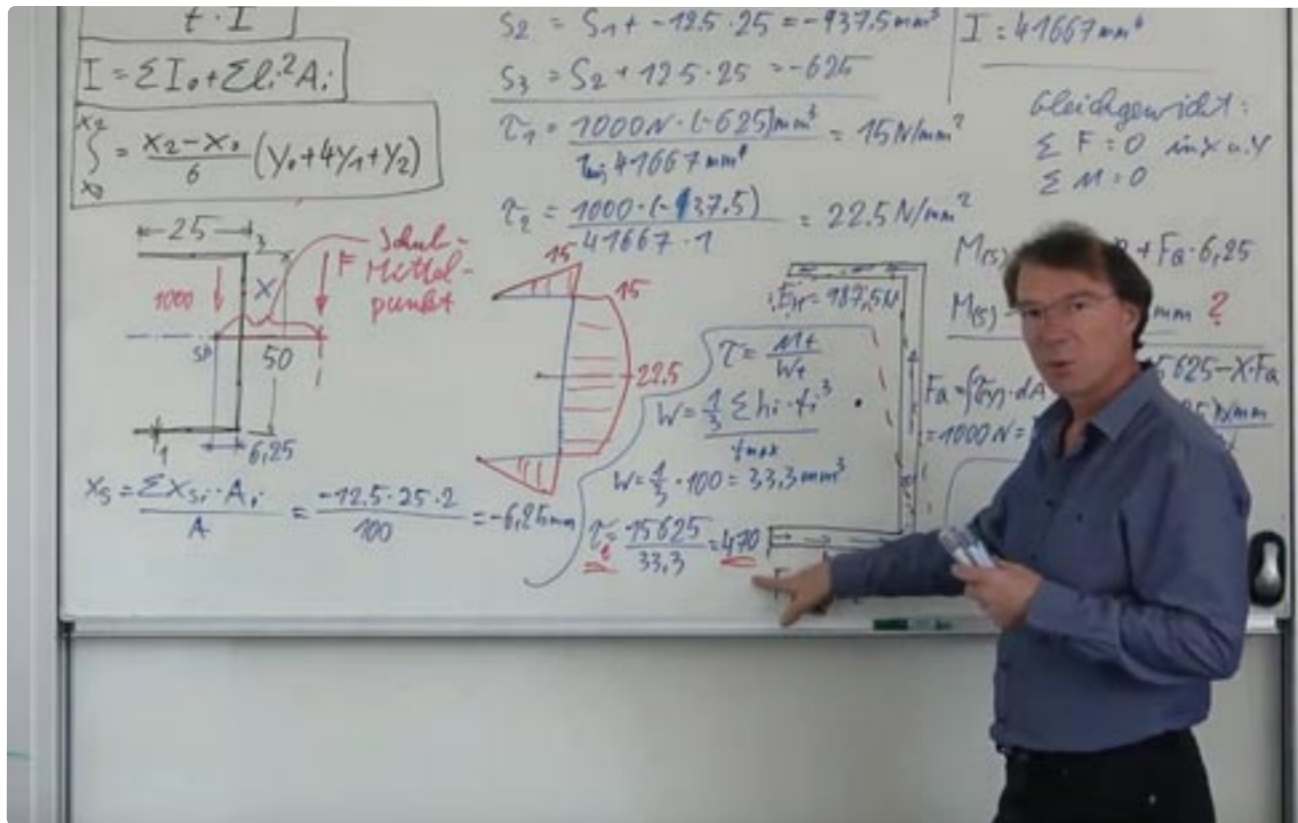 t · I
I = ΣI₀ + Σlᵢ²Aᵢ
x₂
∫ = x₂ - x₀ / 6 (y₀ + 4y₁ + y₂)
x₀
S₂ = S₁ + -12,5 · 25 = -937,5mm³
S₃ = S₂ + 12,5 · 25 = -625
τ₁ = 1000N · (-625)mm³ / 41667mm⁴ = 15 N/mm²
τ₂ = 1000 · (-937,5) / 41667 · 1 = 22,5 N/mm²
I = 41667mm⁴
Gleichgewicht:
Σ F = 0 in x u. y
Σ M = 0
M(S) + FQ · 6,25
M(S) mm ?
15625 - X · FQ
FQ = ∫ · dA
= 1000N =
mm
25
3
1000
X
F
Schub-
Mittel-
punkt
SP
50
1
6,25
xₛ = Σxₛᵢ · Aᵢ / A = -12,5 · 25 · 2 / 100 = -6,25mm
15
15
22,5
= 187,5N
τ = Mt / Wt
W = 1/3 Σ hᵢ · tᵢ³ / tmax
W = 1/3 · 100 = 33,3mm³
τt = 15625 / 33,3 = 470